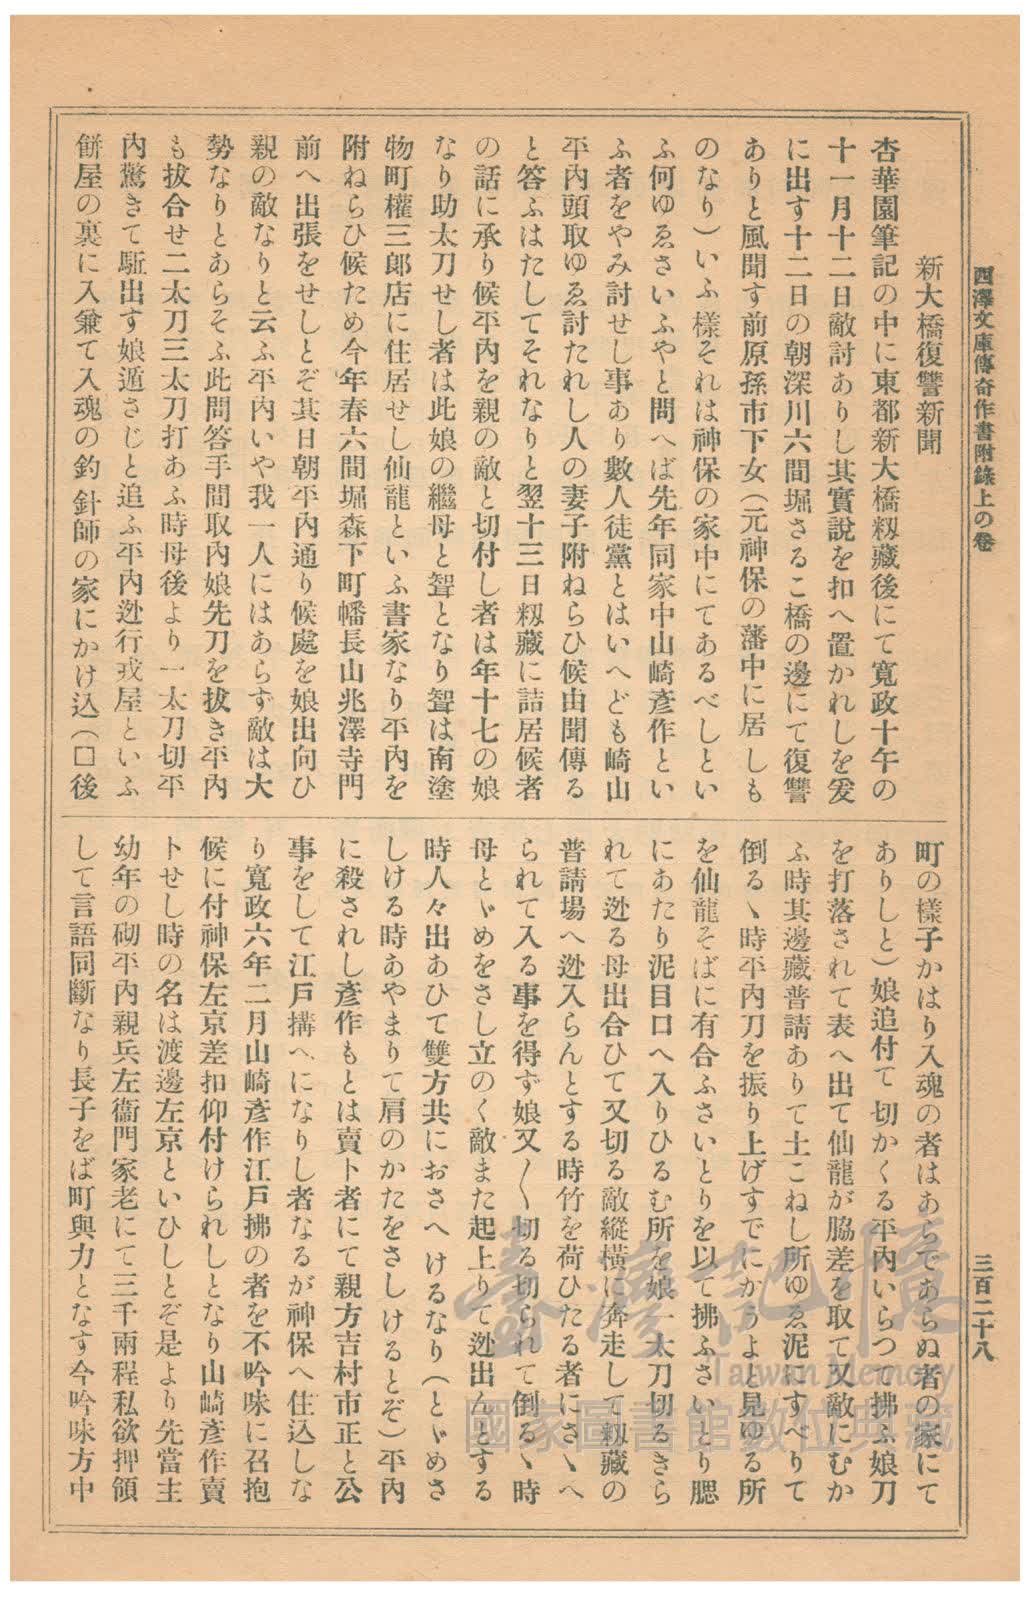 西澤文庫傳奇作書附錄上の卷
三百二十八
新大橋復讐新聞
杏華園筆記の中に東都新大橋籾藏後にて寬政十午の
十一月十二日敵討ありし其實說を扣へ置かれしを爰
に出す十二日の朝深川六間堀さるこ橋の邊にて復讐
ありと風聞す前原孫市下女(元神保の藩中に居しも
のなり)いふ樣それは神保の家中にてあるべしとい
ふ何ゆゑさいふやと問へば先年同家中山崎彥作とい
ふ者をやみ討せし事あり數人徒黨とはいへども崎山
平內頭取ゆゑ討たれし人の妻子附ねらひ候由聞傳る
と答ふはたしてそれなりと翌十三日籾藏に詰居候者
の話に承り候平內を親の敵と切付し者は年十七の娘
なり助太刀せし者は此娘の繼母と聟となり聟は南塗
物町權三郎店に住居せし仙龍といふ書家なり平內を
附ねらひ候ため今年春六間堀森下町幡長山兆澤寺門
前へ出張をせしとぞ其日朝平內通り候處を娘出向ひ
親の敵なりと云ふ平內いや我一人にはあらず敵は大
勢なりとあらそふ此問答手間取內娘先刀を拔き平內
も拔合せ二太刀三太刀打あふ時母後より一太刀切平
內驚きて駈出す娘遁さじと追ふ平內迯行或屋といふ
餠屋の裏に入兼て入魂の釣針師の家にかけ込(□後
町の樣子かはり入魂の者はあらであらぬ者の家にて
ありしと)娘追付て切かくる平內いらつて拂ふ娘刀
を打落されて表へ出て仙龍が脇差を取て又敵にむか
ふ時其邊藏普請ありて土こねし所ゆゑ泥にすべりて
倒るゝ時平內刀を振り上げすでにかうよと見ゆる所
を仙龍そばに有合ふさいとりを以て拂ふさいとり腮
にあたり泥目口へ入りひるむ所を娘一太刀切るきら
れて迯る母出合ひて又切る敵縱橫に奔走して籾藏の
普請場へ迯入らんとする時竹を荷ひたる者にさゝへ
られて入る事を得ず娘又〱切る切られて倒るゝ時
母とゞめをさし立のく敵また起上りて迯出んとする
時人々出あひて雙方共におさへけるなり(とゞめさ
しける時あやまりて肩のかたをさしけるとぞ)平內
に殺されし彥作もとは賣卜者にて親方吉村市正と公
事をして江戶搆へになりし者なるが神保へ住込しな
り寬政六年二月山崎彥作江戶拂の者を不吟味に召抱
候に付神保左京差扣仰付けられしとなり山崎彥作賣
卜せし時の名は渡邊左京といひしとぞ是より先當主
幼年の砌平內親兵左衞門家老にて三千兩程私欲押領
して言語同斷なり長子をば町與力となす今吟味方中
臺灣記憶
Taiwan Memory
國家圖書館數位典藏